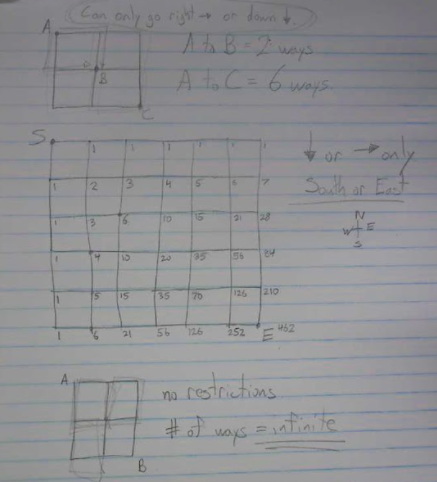 Can only go right → or down ↓.
A
A to B = 2 ways
B
A to C = 6 ways
C
S
1 1 1 1 1 1
↓ or → only
1 2 3 4 5 6 7
South or East
1 3 6 10 15 21 28
N
W E
S
1 4 10 20 35 56 84
1 5 15 35 70 126 210
1 6 21 56 126 252 E 462
A
no restrictions
# of ways = infinite
B